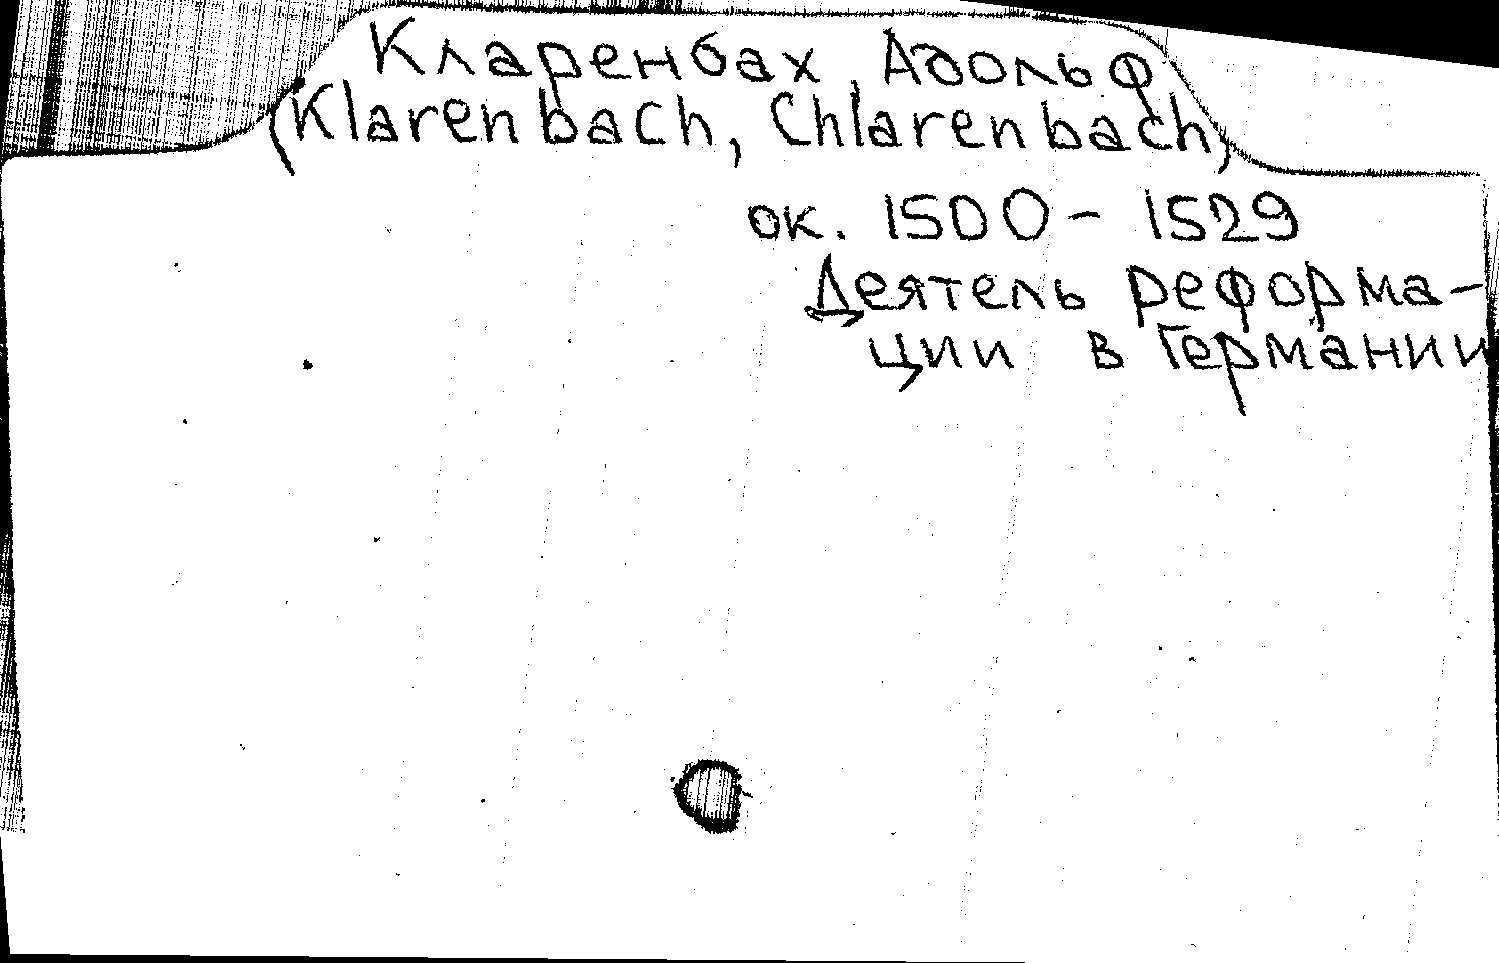 Кларенбах, Адольф
(Klarenbach, Chlarenbach)
ок. 1500 - 1529
Деятель реформа-
ции в Германии